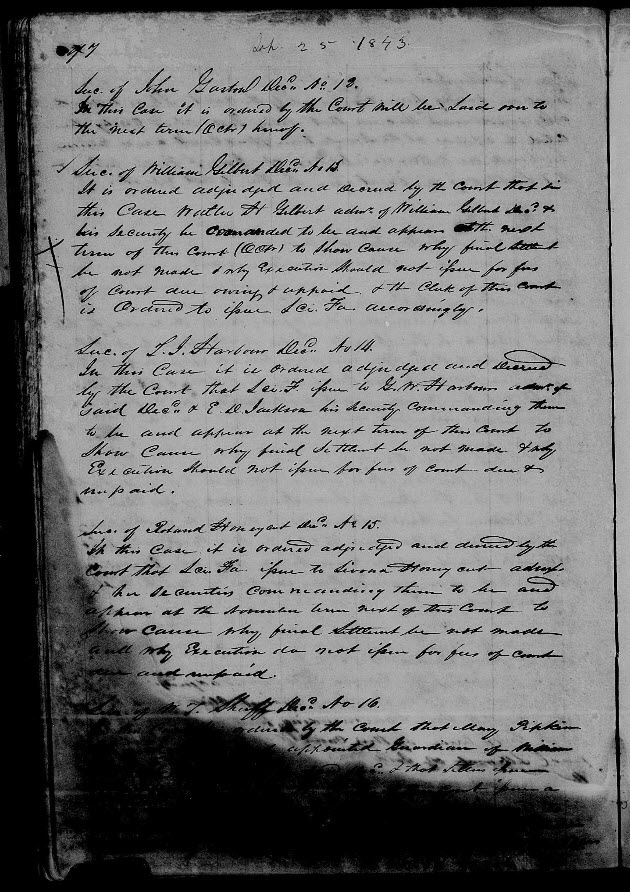 97
Sep. 25 1843.
Suc. of John Gaston Decd. No 12.
In this Case it is ordered by the Court will be Laid over to
the next term (Octr) hereof.
Suc. of William Gilbert Decd. No 13
It is ordered adjudged and decreed by the Court that in
this Case Walter H Gilbert admr. of William Gilbert Decd. &
his security be commanded to be and appear at the next
term of this Court (Octr) to show cause why final settlemt
be not made & why Execution should not issue for fees
of Court due owing & unpaid & the Clerk of this court
is Ordered to issue Sci. Fa. accordingly.
Suc. of T. J. Harbour Decd. No 14.
In this Case it is ordered adjudged and Decreed
by the Court that Sci. F. issue to G. W. Harbour admr. of
said Decd. & E. D. Jackson his security commanding them
to be and appear at the next term of this Court to
Show Cause why final settlemt be not made & why
Execution should not issue for fees of court due &
unpaid.
Suc. of Roland Honeycut Decd. No 15.
In this Case it is ordered adjudged and decreed by the
Court that Sci. Fa. issue to Honeycut admx.
& her securities commanding them to be and
appear at the November term next of this Court to
Show Cause why final settlemt be not made
and why Execution do not issue for fees of court
due and unpaid.
Suc. of Decd. No 16.
ordered by the Court that Mary Pipkin
appointed Guardian of William
& that letters issue